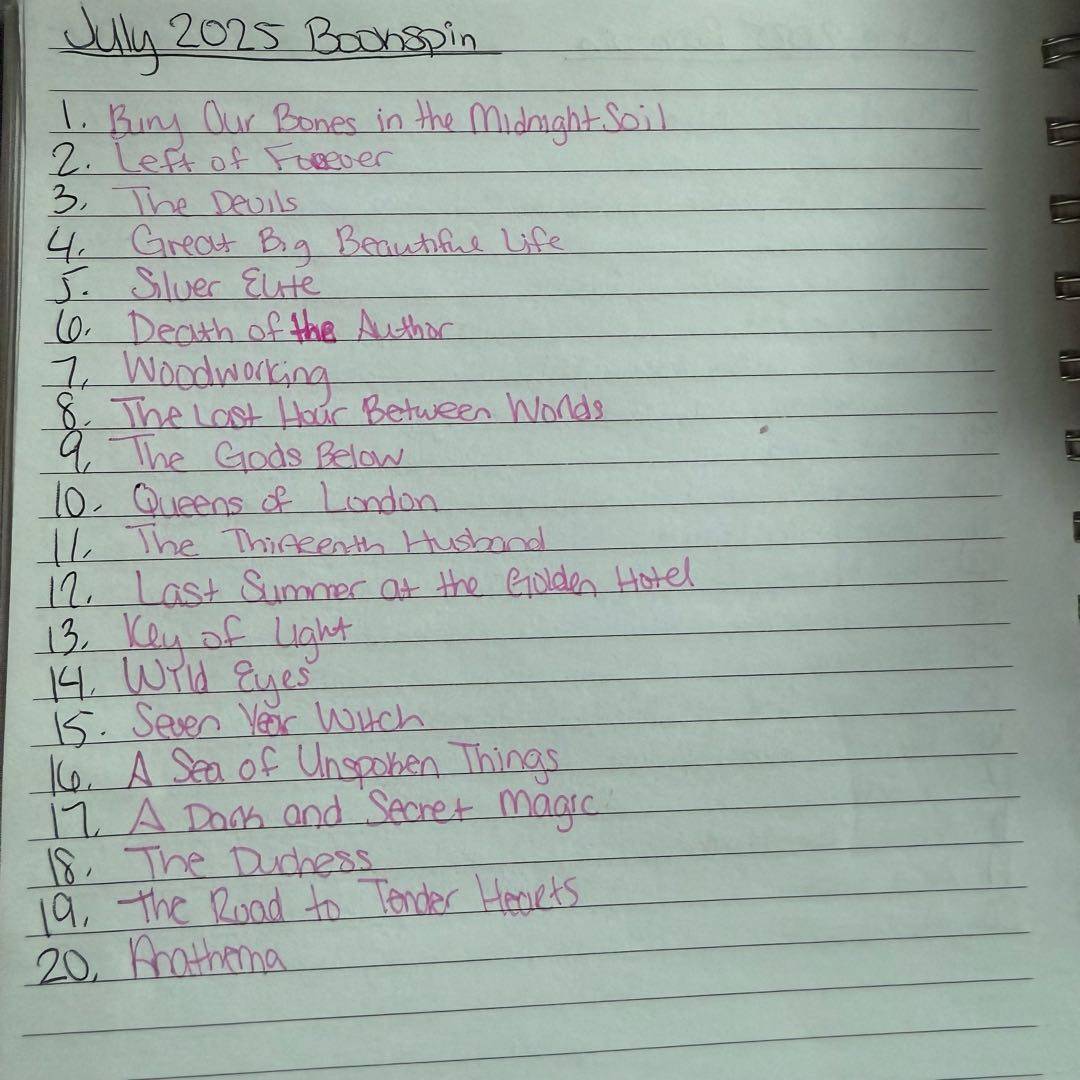 July 2025 Bookspin
1. Bury Our Bones in the Midnight Soil
2. Left of Forever
3. The Devils
4. Great Big Beautiful Life
5. Silver Elite
6. Death of the Author
7. Woodworking
8. The Last Hour Between Worlds
9. The Gods Below
10. Queens of London
11. The Thirteenth Husband
12. Last Summer at the Golden Hotel
13. Key of Light
14. Wild Eyes
15. Seven Year Witch
16. A Sea of Unspoken Things
17. A Dark and Secret Magic
18. The Duchess
19. The Road to Tender Hearts
20. Anathema